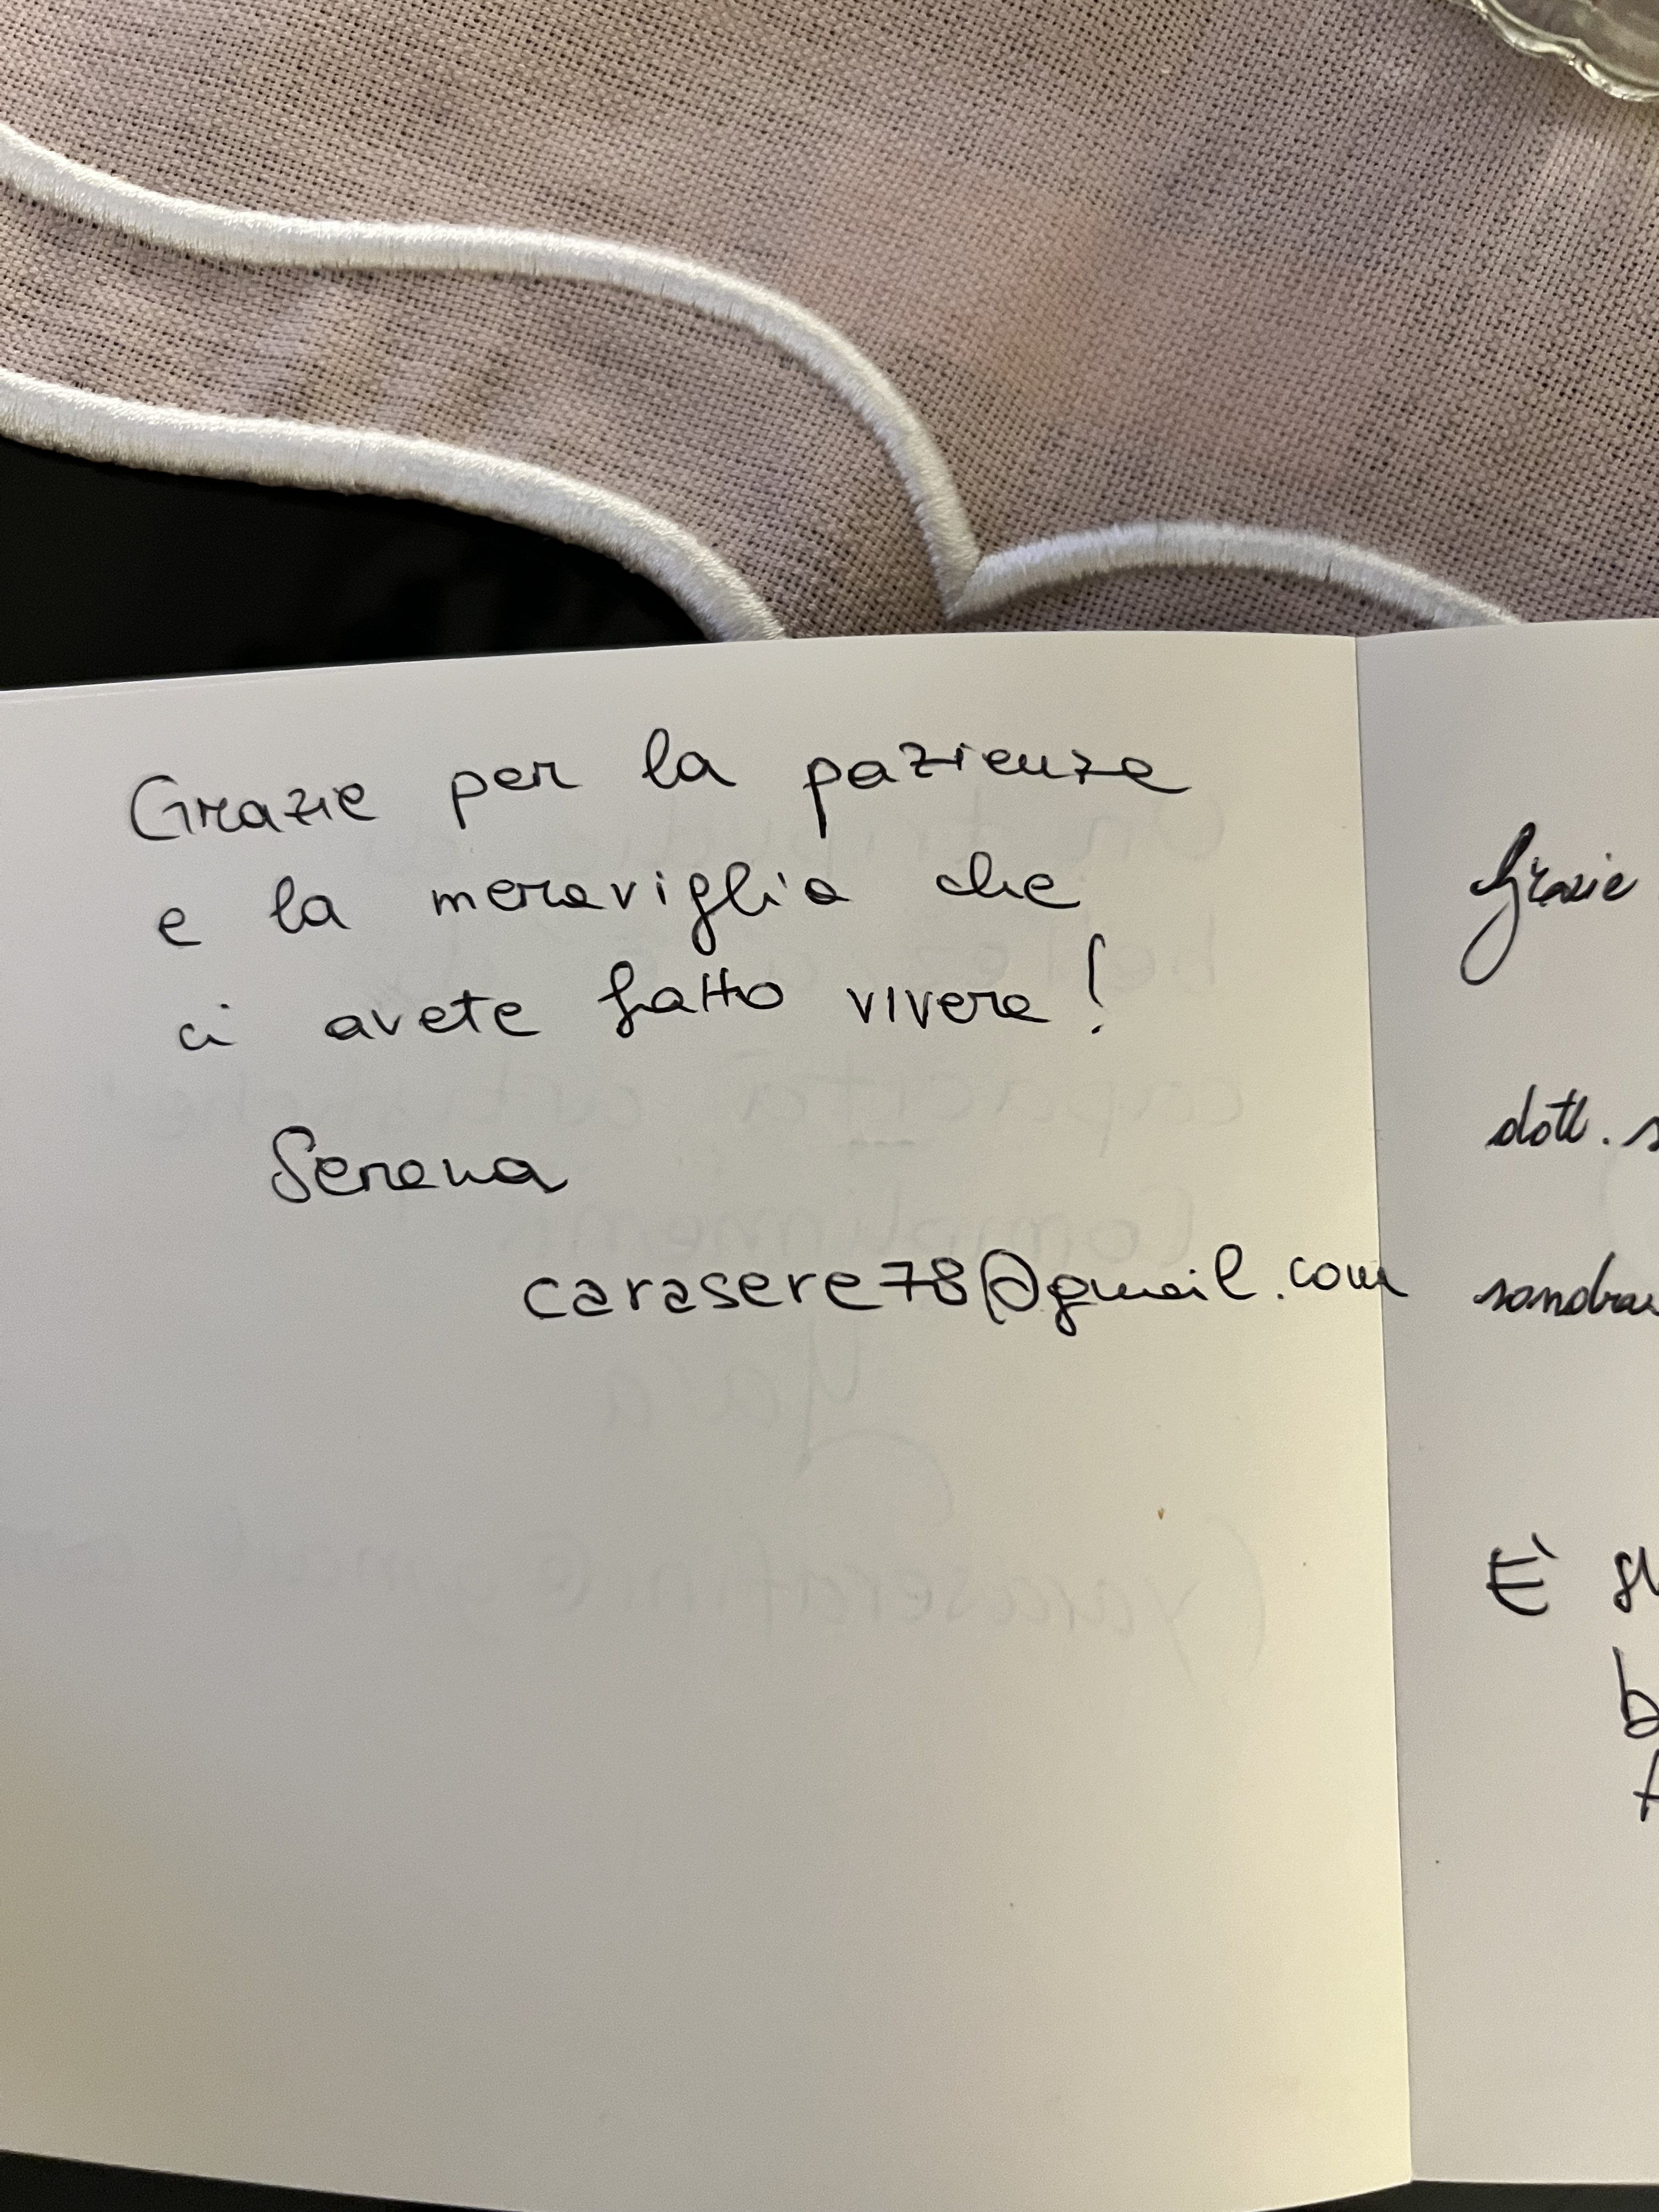 Grazie per la pazienza
e la meraviglia che
ci avete fatto vivere!
Serena
carasere78@gmail.com
Grazie
dott. s
sandra
È
b